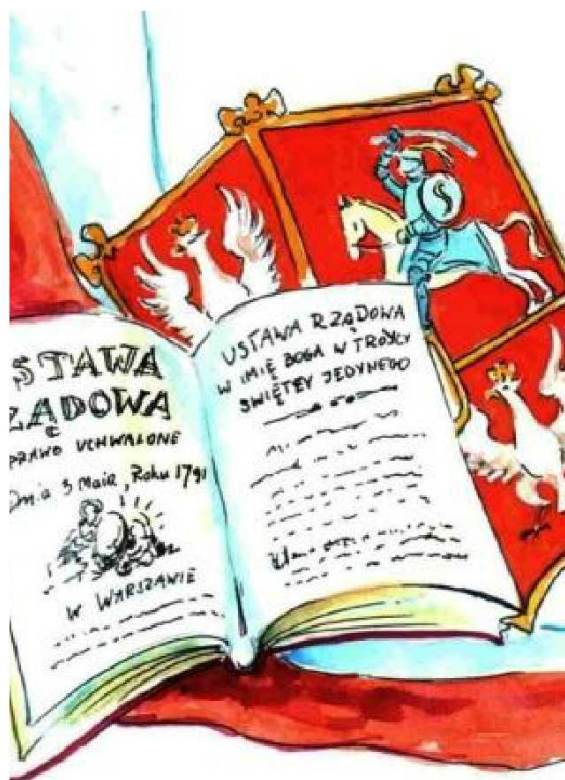 STAWA
ZĄDOWA
PRAWO UCHWALONE
Dnia 3 Maia, Roku 1791
W WARSZAWIE
USTAWA RZĄDOWA
W IMIĘ BOGA W TRÓYCY
SWIĘTEY JEDYNEGO